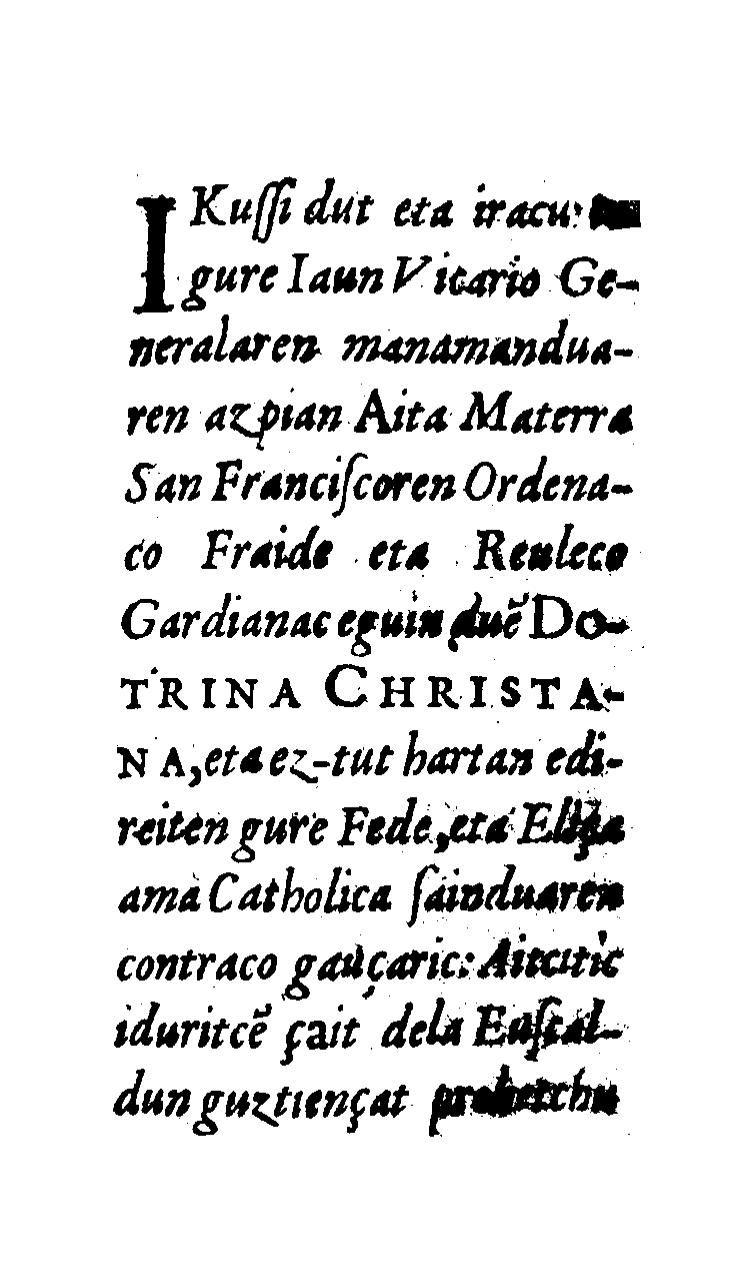 IKuſſi dut eta iracur
gure Iaun Vicario Ge-
neralaren manamandua-
ren azpian Aita Materra
San Franciſcoren Ordena-
co Fraide eta Reuleco
Gardianac eguin duẽ DO-
TRINA CHRISTA-
NA, eta ez-tut hartan edi-
reiten gure Fede, eta Eliça
ama Catholica ſainduaren
contraco gauçaric: Aitcitic
iduritcẽ çait dela Euſcal-
dun guztiençat probetchu